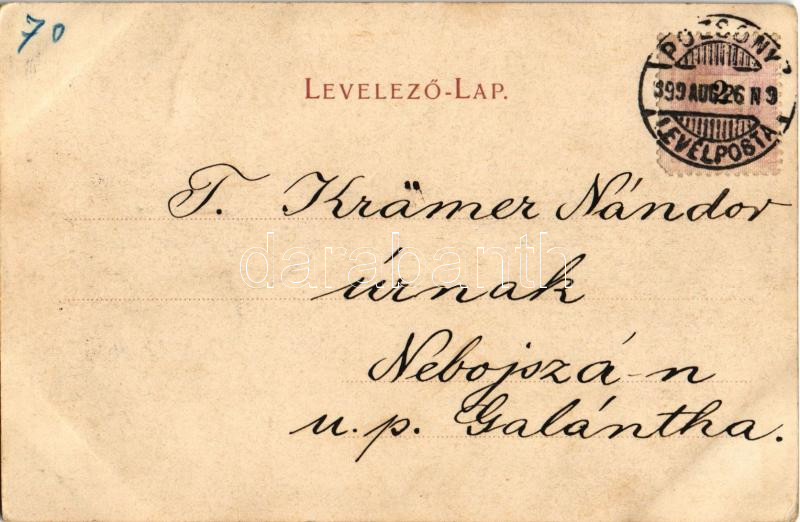 70
LEVELEZŐ-LAP.
POZSONY
899 AUG. 26 N 9
LEVÉLPOSTA
T. Krämer Nándor
úrnak
Nebojszá-n
u. p. Galántha.
darabanth